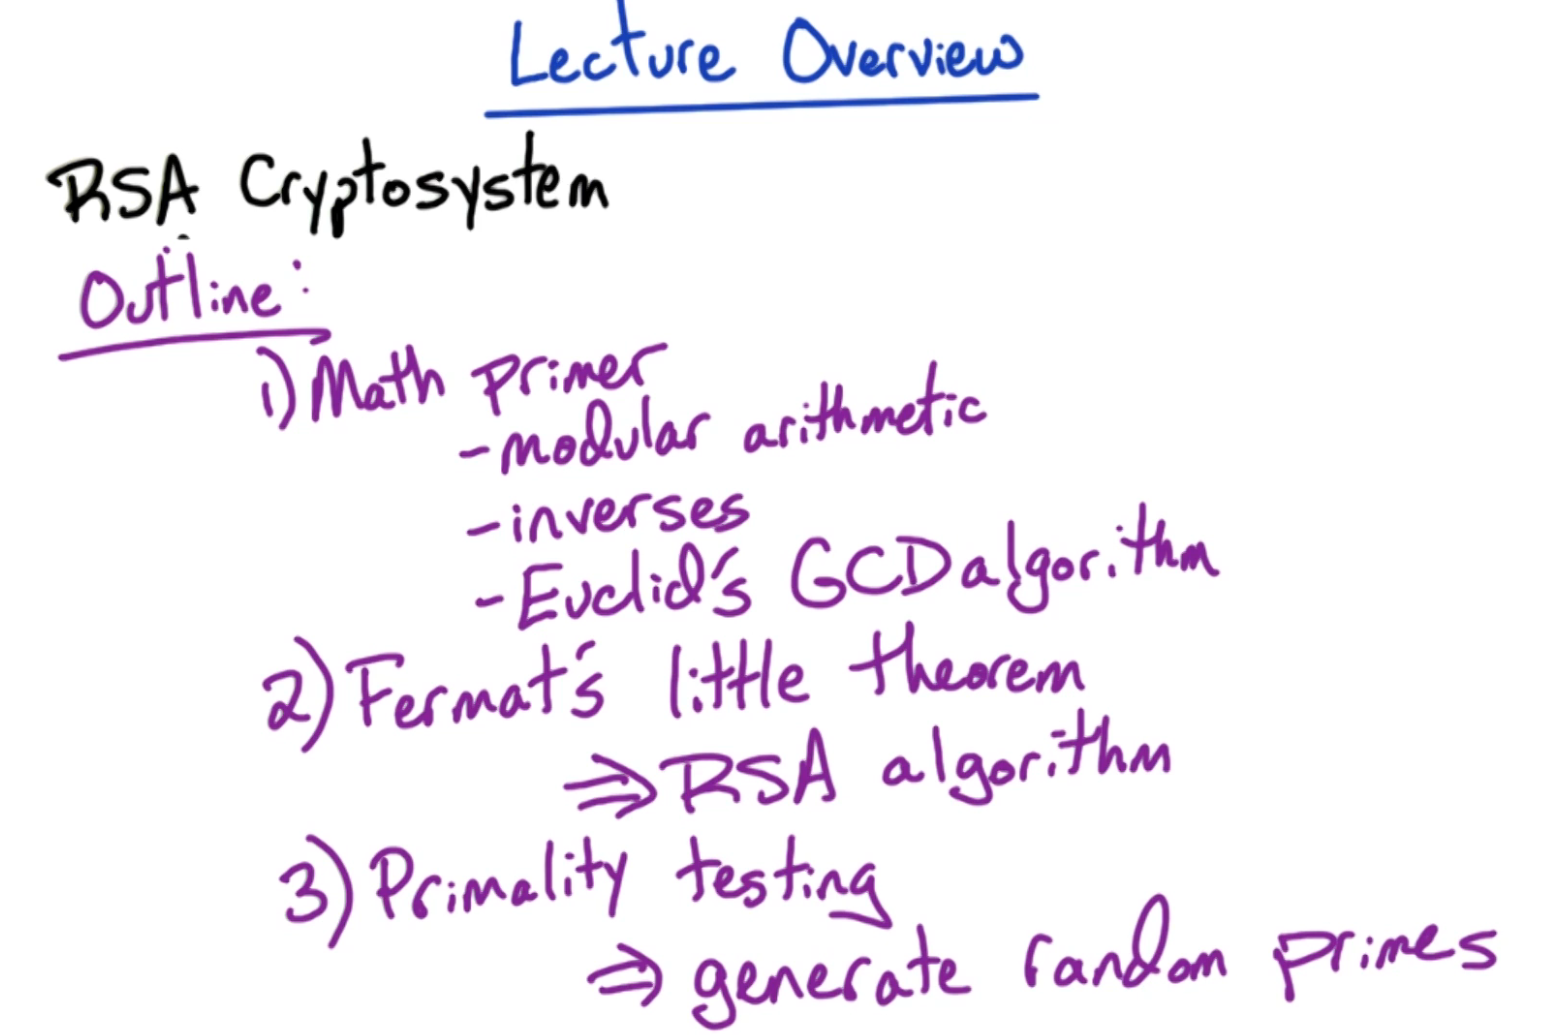 Lecture Overview
RSA Cryptosystem
Outline:
1) Math primer
- modular arithmetic
- inverses
- Euclid's GCD algorithm
2) Fermat's little theorem
⇒ RSA algorithm
3) Primality testing
⇒ generate random primes